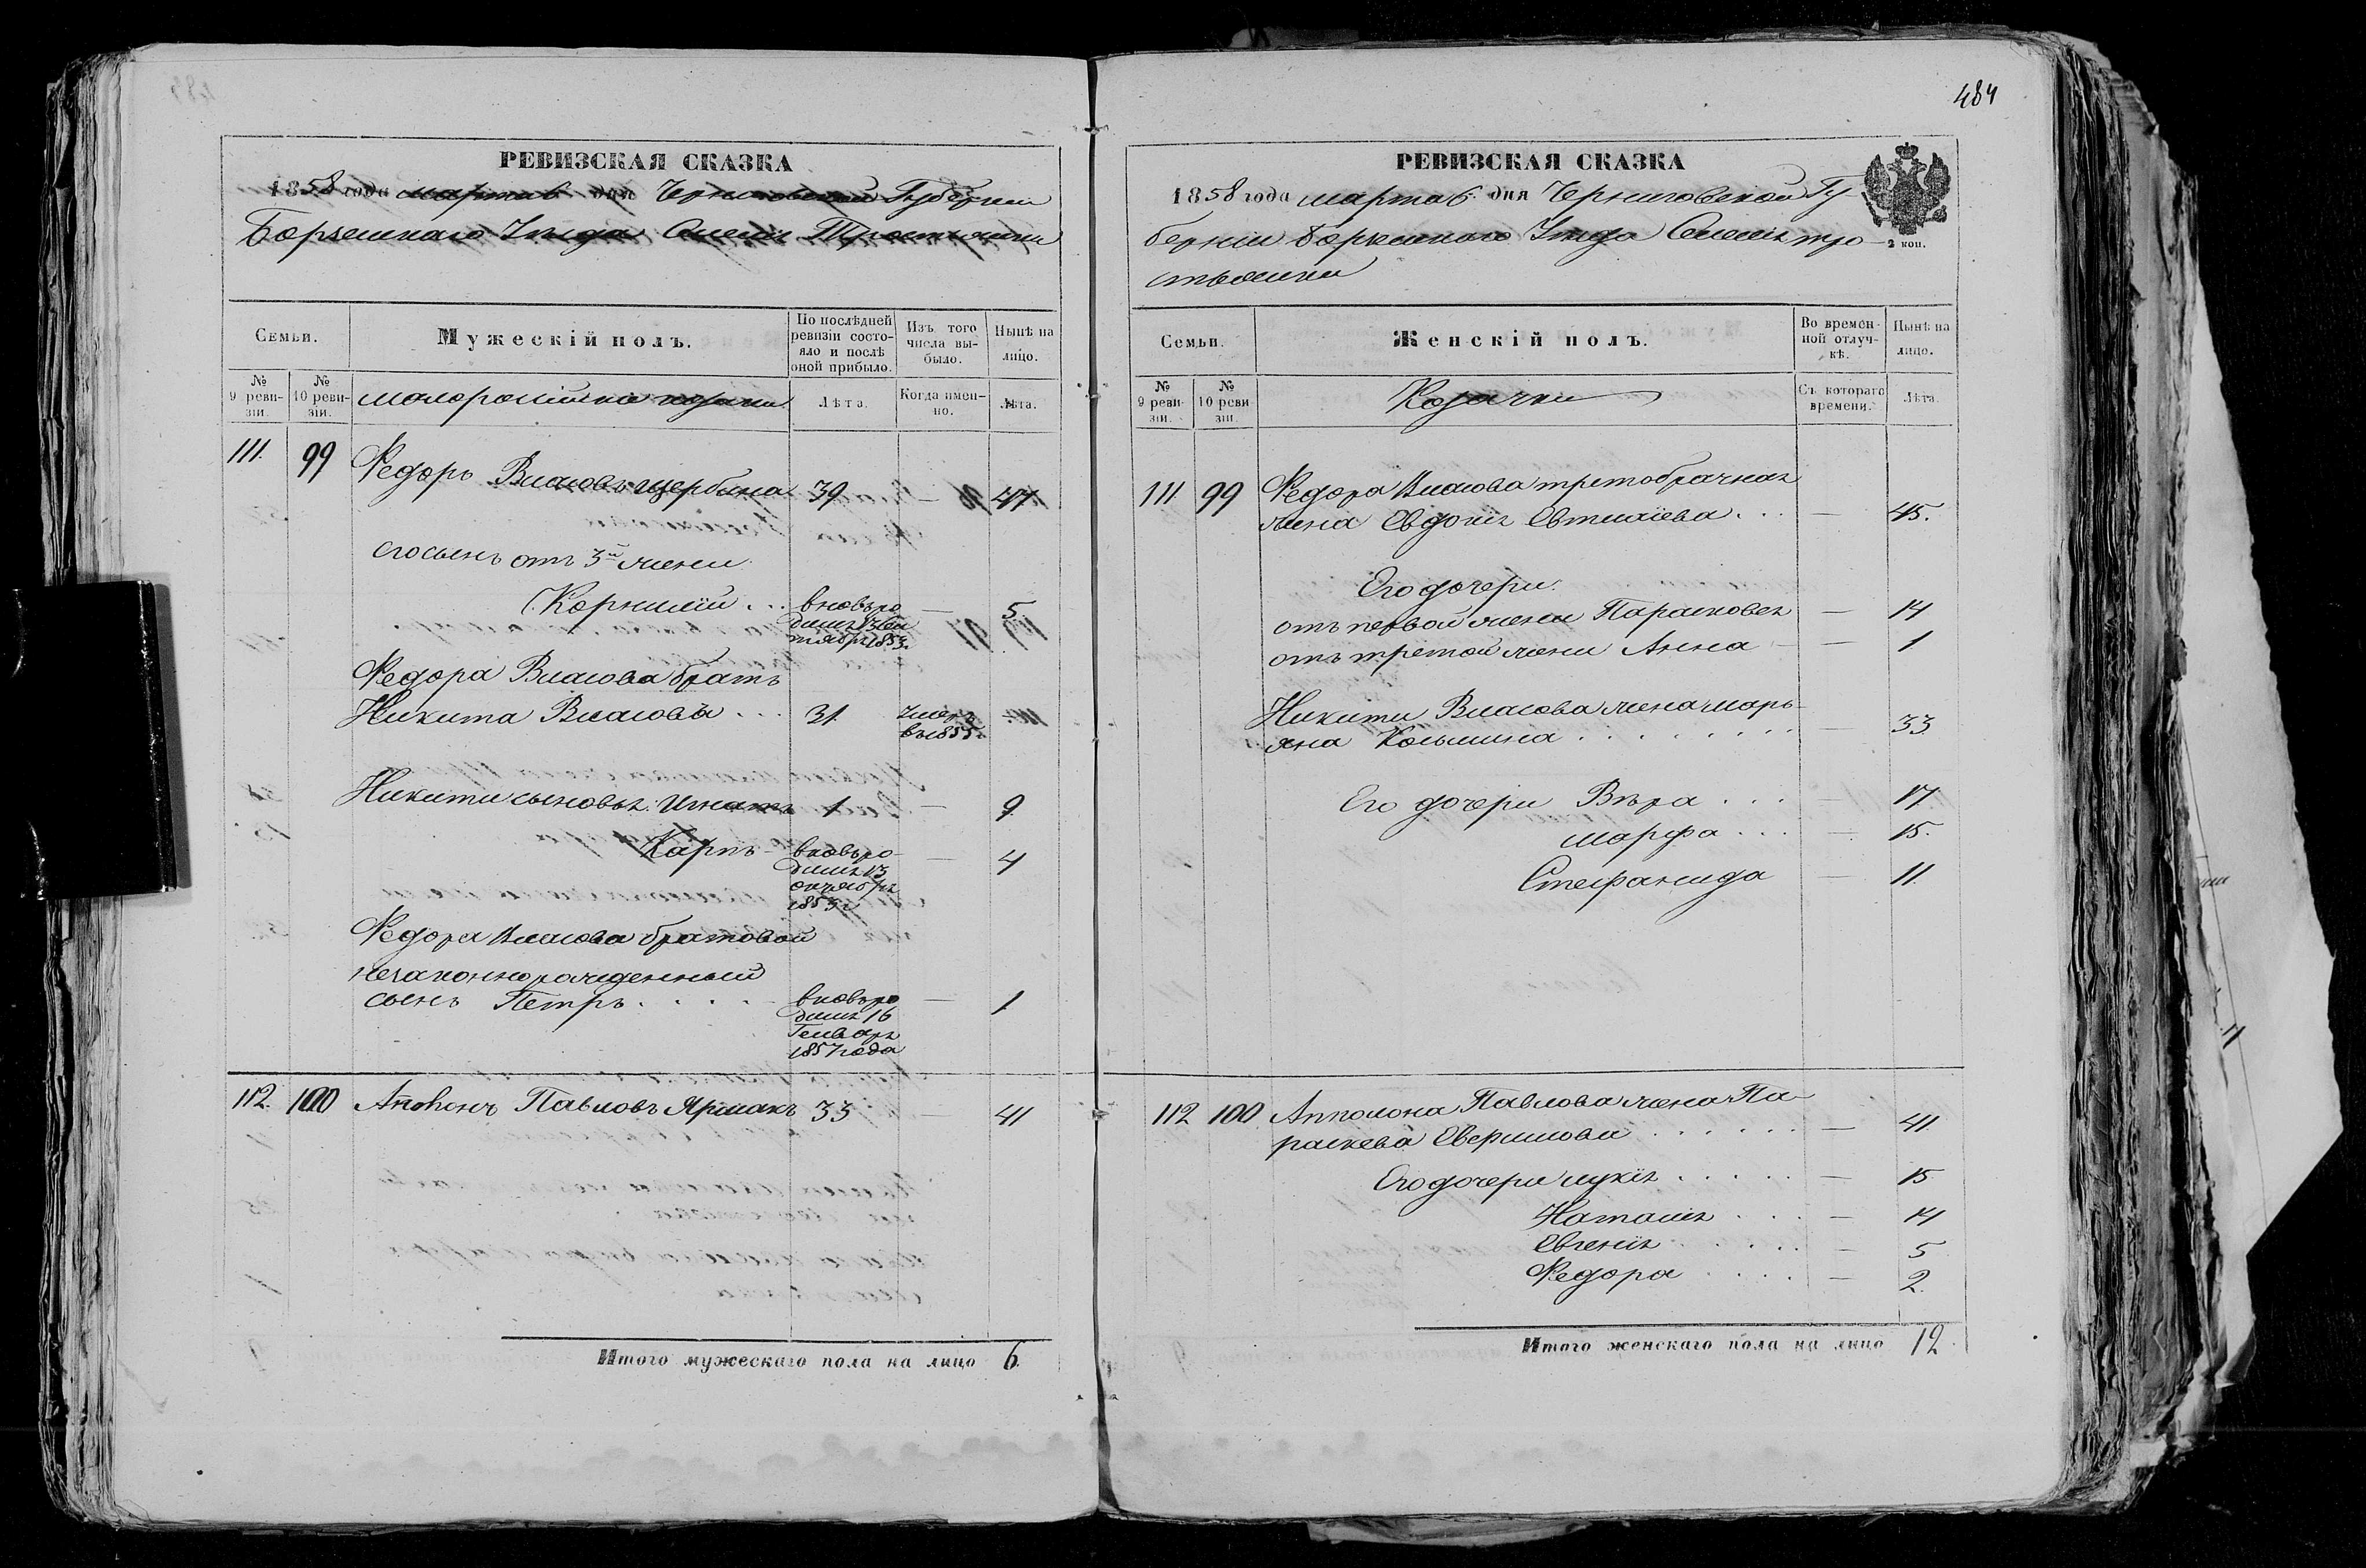 РЕВИЗСКАЯ СКАЗКА
1858 года марта 6 дня Черниговской Губернии
Борзенскаго Уезда Тростянки
Семьи.
Мужескій полъ.
По послѣдней ревизіи состояло и послѣ оной прибыло.
Изъ того числа выбыло.
Нынѣ на лицо.
№ 9 ревизіи.
№ 10 ревизіи.
малоросійскіе козаки
Лѣта.
Когда именно.
Лѣта.
111. 99 Федоръ Власовъ Щербина 39 — 47
его сынъ отъ 3й жены
Корнилій . . . вновь ро — 5
дился 13 сен
тября 1853г.
Федора Власова братъ
Никита Власовъ . . . 31. умеръ —
въ 1855.
Никиты сыновья: Игнатъ 1 — 9
Карпъ — вновь ро — 4
дился 13
октября
1853г
Федора Власова братовой
незаконнорожденный
сынъ Петръ . . . . вновь ро — 1
дился 16
Генваря
1857 года
112. 100 Павловъ Ярмакъ 33 — 41
Итого мужескаго пола на лицо 6.
484
РЕВИЗСКАЯ СКАЗКА
1858 года марта 6 дня Черниговской Гу-
берніи Борзенскаго Уезда тро-
стянки
2 коп.
Семьи.
Женскій полъ.
Во временной отлучкѣ.
Нынѣ на лицо.
№ 9 ревизіи.
№ 10 ревизіи.
Козачки
Съ котораго времени.
Лѣта.
111. 99 Федора Власова третобрачная
жена Евдокія . . . — 45.
Его дочери.
отъ первой жены Парасковея — 14
отъ третой жены Анна — — 1
Никиты Власова жена Марь-
яна . . . . . . . — 33
Его дочери Вѣра . . . — 17
Марфа . . . — 15.
Стефанида — 11.
112 100 Апполона Павлова жена Па-
раскева . . . . . . — 41.
Его дочери Лукія . . . . . — 15
Наталія . . . — 14
Евгенія . . . . . — 5
Федора . . . . — 2.
Итого женскаго пола на лицо 12